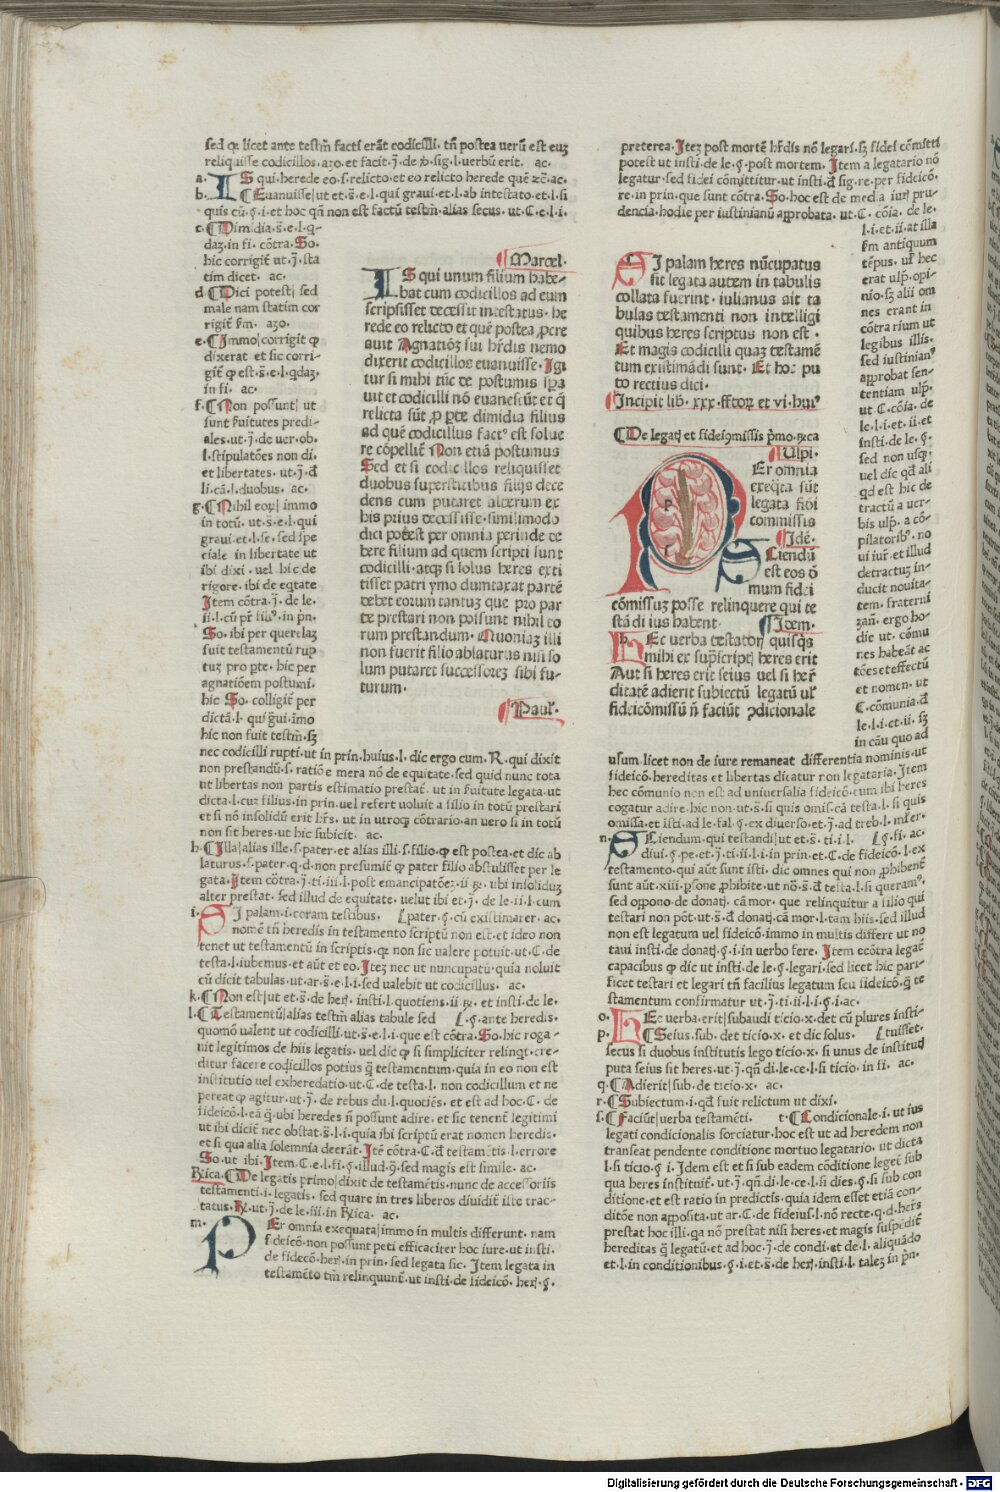 sed qꝫ licet ante testm̄ facti erāt codicilli. tn̄ postea verū est euꝫ
reliquisse codicillos. aꝫo. et facit. j. de v̓. sig. l. verbū erit. ac.
a. IS qui. herede eo. s. relicto. et eo relicto herede quē ⁊c̄. ac.
b. ¶ Euanuisse| ut et. s̄. e. l. qui graui. et. l. ab intestato. et. l. si
quis cū. §. i. et hoc qn̄ non est factū testm̄. alias secus. ut. C. e. l. i.
c. ¶ Dimidia. s̄. e. l. q-
daꝫ. in fi. cōtra. So.
hic corrigit̄ ut. j. sta
tim dicet. ac.
d. ¶ Dici potest| sed
male nam statim cor
rigit̄ s̄m. aꝫo.
e. ¶ Immo| corrigit qꝫ
dixerat et sic corri-
git̄ qꝫ est. s̄. e. l. qdaꝫ.
in fi. ac.
f. ¶ Non possunt| ut
sunt s̄uitutes predi-
ales. ut. j. de uer. ob.
l. stipulatōes non di.
et libertates. ut. j. d̄
li. cā. l. duobus. ac.
g. ¶ Nihil eoꝝ| immo
in totū. ut. s̄. e. l. qui
graui. et. l. se. sed spe
ciale in libertate ut
ibi dixi. uel hic de
rigore. ibi de eq̄tate
Item cōtra. j. de le.
ii. l. cū pr̄ libꝰ. in pn̄.
So. ibi per querelaꝫ
fuit testamentū rup
tuꝫ pro pte. hic per
agnatiōem postumi.
hic So. colligit̄ per
dictā. l. qui ḡui. īmo
hic non fuit testm̄. sꝫ
nec codicilli rupti. ut in prin. huius. l. dic ergo cum. R. qui dixit
non prestandū. s. ratiōe mera nō de equitate. sed quid nunc tota
ut libertas non partis estimatio prestat̄. ut in s̄uitute legata. ut
dicta. l. cuꝫ filius. in prin. uel refert uoluit a filio in totū prestari
et si nō insolidū erit hr̄s. ut in utroqꝫ cōtrario. an uero si in totū
non sit heres. ut hic subicit. ac.
h. ¶ Illa| alias ille. s. pater. et alias illi. s. filio. qꝫ est postea. et dic ab
laturus. s. pater. q. d. non presumit̄ qꝫ pater filio abstulisset per le
gata. Item cōtra. j. ti. iii. l. post emancipatōeꝫ. ii ꝶ. ubi insoliduꝫ
alter prestat. sed illud de equitate. uelut ibi et. j. de le. ii. l. cum
i. SI palam. i. coram testibus. ⁅pater. §. cū existimarer. ac.
nomē tn̄ heredis in testamento scriptū non est. et ideo non
tenet ut testamentū in scriptis. qꝫ non sic ualere potuit. ut. C. de
testa. l. iubemus. et aūt et eo. Iteꝫ nec ut nuncupatū. quia noluit
cū dicit tabulas. ut ar. s̄. e. l. i. sed ualebit ut codicillus. ac.
k. ¶ Non est| ut et. s̄. de her̄. insti. l. quotiens. ii ꝶ. et insti. de le.
l. ¶ Testamentū| alias testm̄ alias tabule sed ⁅§. ante heredis.
quomō ualent ut codicilli. ut. s̄. e. l. i. que est cōtra. So. hic roga-
uit legitimos de hiis legatis. uel dic qꝫ si simpliciter relinqt̄. cre-
ditur facere codicillos potius q̄ testamentum. quia in eo non est
institutio uel exheredatio. ut. C. de testa. l. non codicillum et ne
pereat qꝫ agitur. ut. j. de rebus du. l. quotiēs. et est ad hoc. C. de
fideicō. l. eā q̄. ubi heredes n̄ possunt adire. et sic tenent legitimi
ut ibi dicit̄ nec obstat. s̄. l. i. quia ibi scriptū erat nomen heredis.
et si qua alia solemnia deerāt. Itē cōtra. C. d̄ testam̄tis. l. errore
So. ut ibi. Item. C. e. l. fi. §. illud. q̄. sed magis est simile. ac.
Rica. ¶ De legatis primo| dixit de testamētis. nunc de accessoriis
testamenti. i. legatis. sed quare in tres liberos diuidit̄ iste trac-
tatus. R. ut. j. de le. iii. in Rica. ac.
m. PEr omnia exequata| immo in multis differunt. nam
fideicō. non possunt peti efficaciter hoc iure. ut insti.
de fideicō. her̄. in prin. sed legata sic. Item legata in
testamēto tm̄ relinquunt̄. ut insti. de fideicō. her̄. §.
¶ Marcel.
IS qui unum filium habe-
bat cum codicillos ad eum
scripsisset decessit intestatus. he
rede eo relicto et quē postea ꝓcre
auit Agnatiōeꝫ sui hr̄dis nemo
dixerit codicillos euanuisse. Igi
tur si mihi tūc de postumis spa
uit et codicilli nō euanescūt et q̄
relicta sūt ꝓ pte dimidia filius
ad quē codicillus factꝰ est solue
re cōpellit̄ Non etiā postumus
Sed et si codicillos reliquisset
duobus superstitibus filijs dece
dens cum putaret alterum ex
his prius decessisse. similimodo
dici potest per omnia perinde de
bere filium ad quem scripti sunt
codicilli. atqꝫ si solus heres exti
tisset patri ymo dumtaxat partē
debet eorum tantuꝫ que pro par
te prestari non possunt nihil eo
rum prestandum. Quoniaꝫ illi
non fuerit filio ablaturus nisi so
lum putaret successoreꝫ sibi fu-
turum.
¶ Paul̓.
preterea. Iteꝫ post mortē hr̄dis nō legari. sꝫ fidei cōmitti
potest ut insti. de le. §. post mortem. Item a legatario nō
legatur. sed fidei cōmittitur. ut insti. d̄ sig. re. per fideicō.
re. in prin. que sunt cōtra. So. hoc est de media iuꝝ pru-
dencia. hodie per iustinianū approbata. ut. C. cōia. de le.
l. i. et. ii. et at illa
s̄m antiquum
tēpus. ur̄ hec
erat ulp̄. opi-
nio. sꝫ alii om
nes erant in
cōtrarium ut
legibus illis.
sed iustinianꝰ
approbat sen-
tentiam ulp̄.
ut. C. cōia. de
le. l. i. et. ii. et
insti. de le. §.
sed non usqꝫ.
uel dic qd̄ ali
qd est hic de
tractū a uer-
bis ulp̄. a cō-
pilatoribꝰ. no
ui iur̄. et illud
detractuꝫ in-
ducit nouita-
tem. fraterni
ꝫan̄. ergo ho-
die ut. cōmu
nes habeāt ac
tōes et effectū
et nomen. ut
C. cōmunia. d̄
le. l. i. et. ii. sꝫ
in cāu quo ad
i. SI palam heres nūcupatus
sit legata autem in tabulis
collata fuerint. iulianus ait ta
bulas testamenti non intelligi
quibus heres scriptus non est.
Et magis codicilli quaꝫ testamē
tum existimādi sunt. Et hoc pu
to rectius dici.
¶ Incipit lib̄. xxx. ff̄toꝝ et vi. huiꝰ
¶ De legat̄ et fideicōmissis p̄mo. ꝶca
¶ Ulpi.
PEr omnia
exeq̄ta sūt
legata fidei
commissis
¶ Idē.
SCiendū
est eos ō
mum fidei
cōmissuꝫ posse relinquere qui te
stādi ius habent. ¶ Idem.
HEc uerba testator̄ quisq̄s
mihi ex sup̄script̄ heres erit
Aut si heres erit seius uel si her̄
ditatē adierit subiectū legatū ul̓
fideicōmissū n̄ faciūt ꝯdicionale
usum. licet non de iure remaneat differentia nominis. ut
fideicō. hereditas et libertas dicatur non legataria. Item
hec cōmunio non est ad uniuersalia fideicō. cum ibi heres
cogatur adire. hic non. ut. s̄. si quis omis. cā testa. l. si quis
omissa. et isti. ad le. fal. §. ex diuerso. et. j. ad treb. l. mr̄er.
n. SCiendum. qui testandi| ut et. s̄. ti. i. l. ⁅§. fi. ac.
diui. §. pe. et. j. ti. ii. l. i. in prin. et. C. de fideicō. l. ex
testamento. qui aūt sunt isti. dic omnes qui non ꝓhibent̄
sunt aūt. xiii. ꝑsone ꝓhibite. ut nō. s̄. d̄ testa. l. si queramꝰ.
sed oppono. de donat̄. cā mor. que relinquitur a filio qui
testari non pōt. ut. s̄. d̄ donat̄. cā mor. l. tam hiis. sed illud
non est legatum uel fideicō. immo in multis differt ut no
taui insti. de donat̄. §. i. in uerbo fere. Item ecōtra legat̄
capacibus qꝫ dic ut insti. de le. §. legari. sed licet hic pari-
ficet testari et legari tn̄ facilius legatum seu fideicō. q̄ te
stamentum confirmatur ut. j. ti. ii. l. i. §. i. ac.
o. HEc uerba. erit| subaudi ticio. x. det cū plures insti-
p. ¶ Seius. sub. det ticio. x. et dic solus. ⁅tuisset.
secus si duobus institutis lego ticio. x. si unus de institut̄
puta seius sit heres. ut. j. qn̄ di. le. ce. l. si ticio. in fi. ac.
q. ¶ Adierit| sub. de ticio. x. ac.
r. ¶ Subiectum. i. qd̄ fuit relictum ut dixi.
s. ¶ Faciūt| uerba testamēti. t. ¶ Condicionale. i. ut ius
legati condicionalis sorciatur. hoc est ut ad heredem non
transeat pendente conditione mortuo legatario. ut dicta
l. si ticio. §. i. Idem est et si sub eadem cōditione leget̄ sub
qua heres instituit̄. ut. j. qn̄. di. le. ce. l. si dies. §. si sub con
ditione. et est ratio in predictis. quia idem esset etiā con-
ditōe non apposita. ut ar. C. de fideiuꝭ. l. nō recte. q. d. her̄s
prestat hoc illi. qa nō prestat nisi heres. et magis suspēdit̄
hereditas q̄ legatū. et ad hoc. j. de condi. et de. l. aliquādo
et. l. in conditionibus. §. i. et. s̄. de her̄. insti. l. taleꝫ in pn̄.
Digitalisierung gefördert durch die Deutsche Forschungsgemeinschaft - DFG